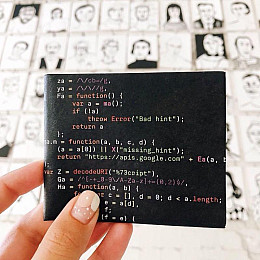 za = /\/cb=/g,
ya = /\/\//g,
Fa = function() {
var a = ma();
if (!a)
throw Error("Bad hint");
return a
a.m = function(a, b, c, d) {
(a = a[0]) || X["missing_hint");
return "https://apis.google.com" + Ea(a, b
var Z = decodeURI("%73cript"),
Ga = /^[-+_0-9\/A-Za-z]+={0,2}$/,
Ha = function(a, b) {
for c = [], d = 0; d < a.length;
e = a[d],
f;
f = e) {